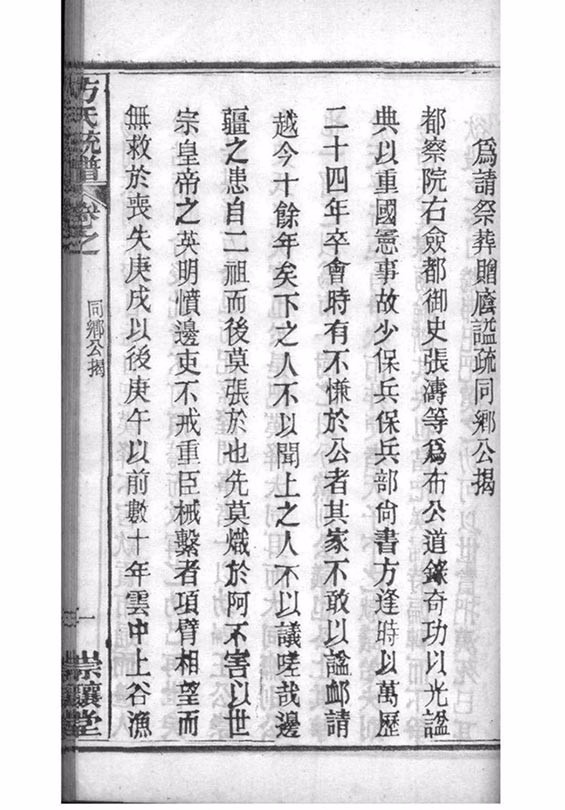 爲請祭葬贈廕謚疏同鄉公揭
都察院右僉都御史張濤等爲布公道錄奇功以光謚
典以重國憲事故少保兵保兵部尙書方逢時以萬歷
二十四年卒會時有不慊於公者其家不敢以謚䘏請
越今十餘年矣下之人不以聞上之人不以議嗟哉邊
疆之患自二祖而後莫張於也先莫熾於阿不害以世
宗皇帝之英明憤邊吏不戒重臣械繫者項臂相望而
無救於喪失庚戌以後庚午以前數十年雲中上谷漁
方氏統譜
卷之
同鄉公揭
一
崇讓堂